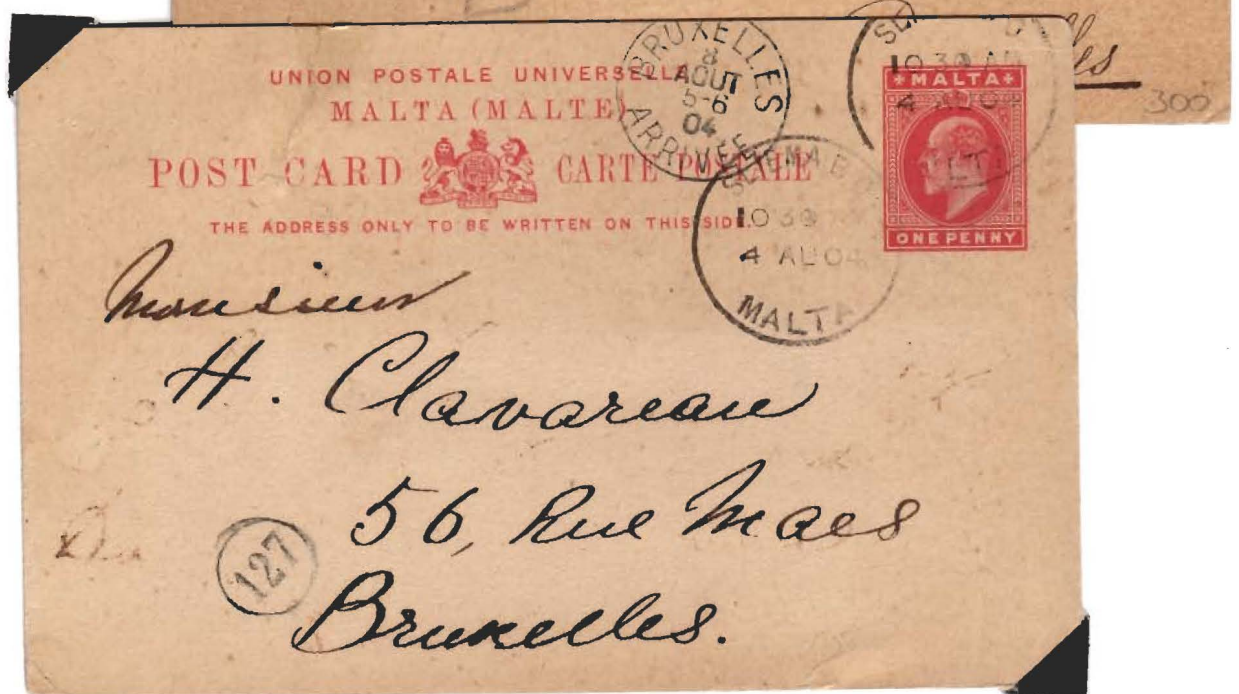 lles
300
UNION POSTALE UNIVERSELLE
MALTA (MALTE)
POST CARD CARTE POSTALE
THE ADDRESS ONLY TO BE WRITTEN ON THIS SIDE.
BRUXELLES
8
AOUT
5-6
04
ARRIVÉE
10 30 AM
4 AU 04
MALTA
ONE PENNY
SLIEMA B.O
10 30
4 AU 04
MALTA
Monsieur
H. Clavareau
56, Rue Maes
Bruxelles.
127